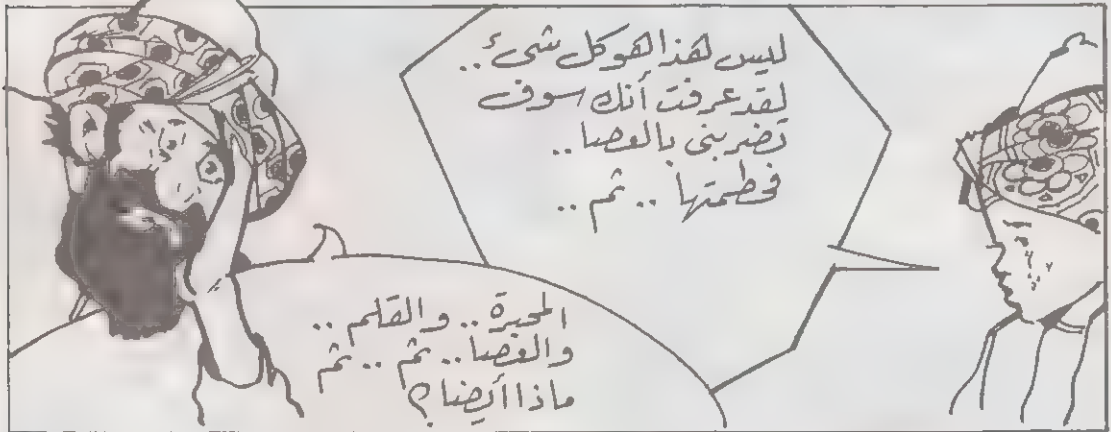 ليس هذا هو كل شئ ..
لقد عرفت أنك سوف
تضربنى بالعصا ..
فحطمتها .. ثم ..
المحبرة .. والقلم ..
والعصا .. ثم .. ثم
ماذا أيضا ؟